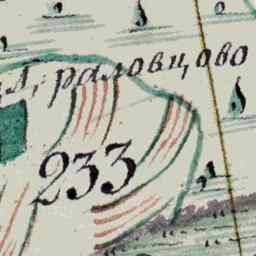 раловцово
233